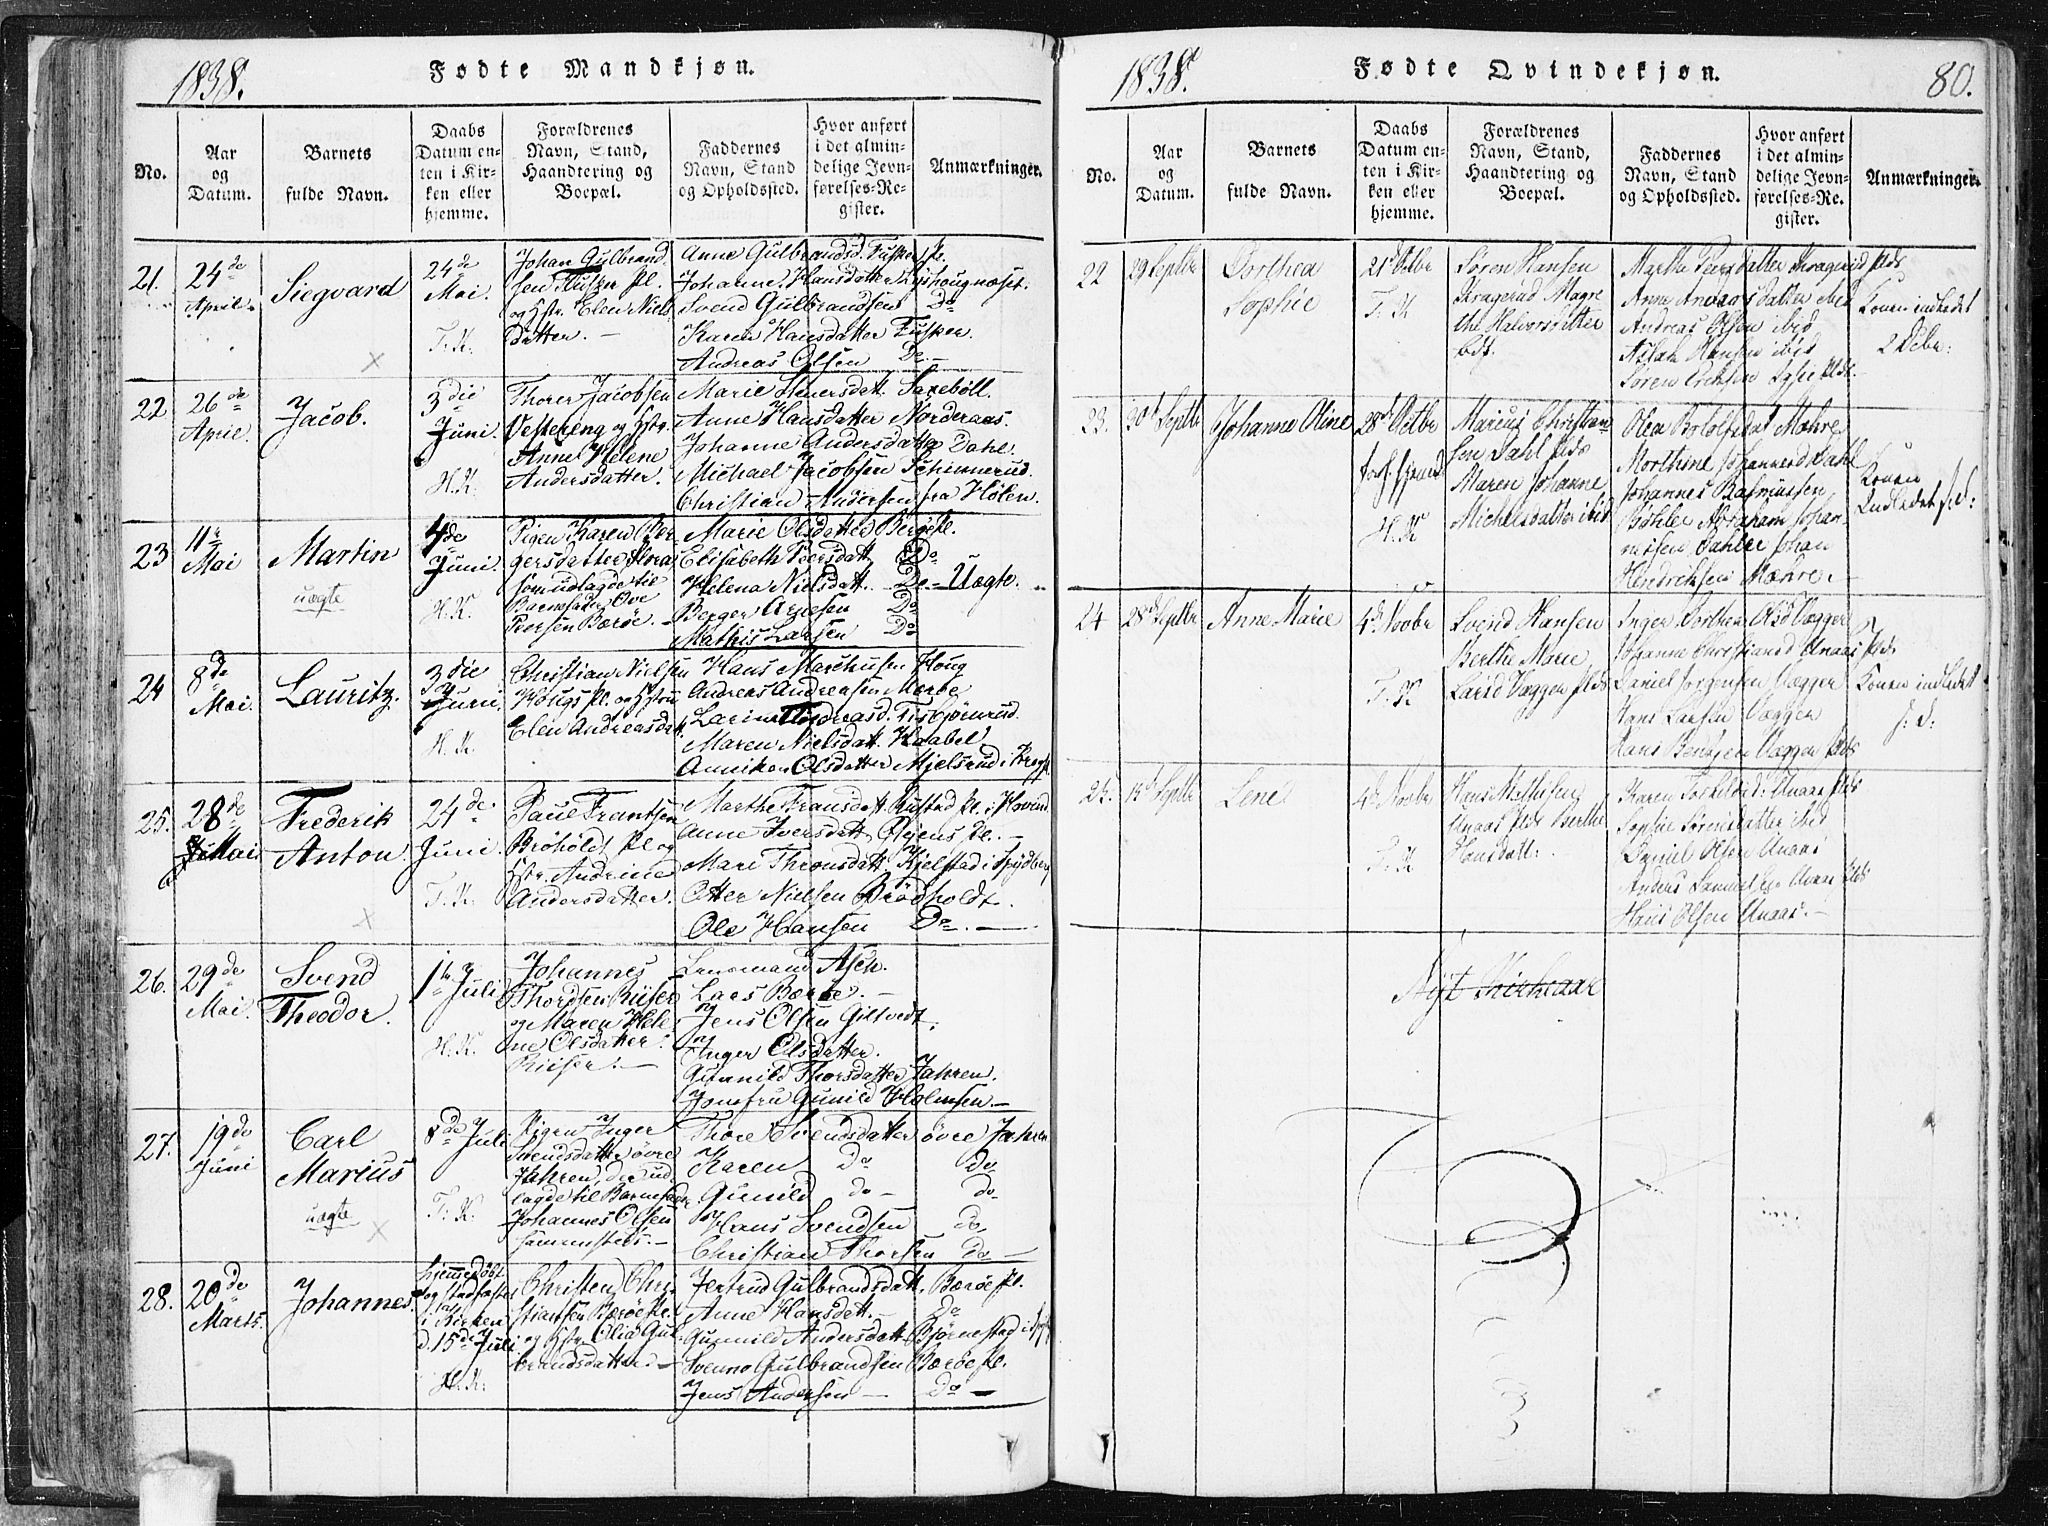 1838.
Fødte Mandkjøn.
No.
Aar og Datum.
Barnets fulde Navn.
Daabs Datum enten i Kirken eller hjemme.
Forældrenes Navn, Stand, Haandtering og Boepæl.
Faddernes Navn, Stand og Opholdssted.
Hvor anført i det almindelige Jevnførelses-Register.
Anmærkninger.
21.
24de
April
Siegvard
24de
Mai.
T. K.
Johan Gulbrand-
sen Fusker pl.
og Hstr. Elen Niels
Datter. —
Anne Gulbrandsd. Fusker pl.
Johanne Hansdatter Lyshougnæset.
Svend Gulbrandsen Do
Karen Hansdatter Fusker.
Andreas Olsen Do. —
22.
26de
April.
Jacob.
3die
Juni.
H. K.
Thorer Jacobsen
Vestereng og Hstr.
Anne Helene
Andersdatter.
Marie Stenersdatt. Saxebøll.
Anne Hansdatter Norderaas.
Johanne Andersdatter Dahl.
Michael Jacobsen Schinnerud.
Christian Andersen fra Hølen.
23
11te
Mai
Martin
uægte
4de
Juni.
H. K.
Pigen Karen Ber-
gersdatter
som udlagde til
Barnefader Ove
Peersen Bærøe. —
Marie Olsdatter Bærøepl.
Elisabeth Peersdatt. Do
Helena Nielsdatt. Do — Uægte.
Berger Arnesen Do
Mathis Larsen Do
24
8de
Mai.
Lauritz.
3die
Juni.
H. K.
Christian Nielsen
Hougs pl. og Hstru
Elen Andreasdatt.
Hans Marthusen Houg
Andreas Andreasen Mørbe
Larine Andreasd. Tisbjørnrud.
Maren Nielsdatt. Haabel
Anniken Olsdatter Mjelsrud i Kragst.
25.
28de
Mai
Frederik
Anton.
24de
Juni.
T. K.
Paul Frantsen
Brøholdt pl og
Hstr. Andrine
Andersdatter.
Marthe Fransdatt. Rustad pl. i Hovind
Anne Iversdatt. Agens pl. —
Mari Thronsdatt. Kjelstad i Spydberg
Otter Nielsen Brødholdt.
Ole Hansen Do. —
26.
29de
Mai.
Svend
Theodor.
1te Juli
H. K.
Johannes
Thordsen Riiser
og Maren Hele-
ne Olsdatter
Riiser. —
Lensmand Asch.
Lars Bærbe. —
Jens Olsen Giltvedt.
Inger Olsdatter.
Gunnild Thorsdatter Jahren.
Jomfru Gunild Holmsen. —
27.
19de
Juni
Carl
Marius
uægte
8de Juli
T. K.
Pigen Inger
Svendsdatter øvre
Jahren, der ud-
lagde til Barnefader
Johannes Olsen
sammesteds. —
Thore Svendsdatter øvre Jahren
Karen Do do
Gunild do — do
Hans Svendsen do
Christian Thorsen Do —
28.
20de
Marts.
Johannes
hjemmedøbt
og stadfæstet
i Kirken
d. 15de Juli
H. K.
Christen Chri-
stiansen Bærøe pl.
og Hstr. Olia Gul-
brandsdatter. —
Jertrud Gulbrandsdatt. Bærøe pl.
Anne Hansdatt. — Do
Gunnild Andersdatt. Bjørnestad i
Svenno Gulbrandsen Bærøe pl.
Jens Andersen — Do —
1838.
Fødte Qvindekjøn.
80.
No.
Aar og Datum.
Barnets fulde Navn.
Daabs Datum enten i Kirken eller hjemme.
Forældrenes Navn, Stand, Haandtering og Boepæl.
Faddernes Navn, Stand og Opholdssted.
Hvor anført i det almindelige Jevnførelses-Register.
Anmærkninger.
22
29 Septbr
Dorthea
Sophie
21d Octbr
T. K
Søren Hansen
Kragerud Magre
the Halvorsdatter
ibd.
Marthe Peersdatter Kragerud plds
Anne Andersdatter ibid
Andreas Olsen ibid
Aslak Hansen ibid
Søren Eriksen
Konen indledet
2 Dcbr:
23.
30d Septbr
Johanne Oline
28d Octbr
H. K
Marius Christian-
sen Dahl plds
Maren Johanne
Michelsdatter ibid
Olea Botolfsdat Mæhre
Morthine Johannesd Dahl
Johannes Rasmussen
Bøhler Abraham Johan-
nessen Dahler Johan
Hendriksen Mæhre. —
Konen
Indledet s. d:
24
28d Septbr
Anne Marie
4d Novbr
T. K
Svend Hansen
Berthe Marie
Larsd Væggen plds
Inger Dorthea Olsd Vægger
Johanne Christiansd Unaas plds.
Daniel Jørgensen Vægger
Hans Larsen Vægger
Hans Bentsen Vægger plds
Konen indledet
s: d:
25.
15d Septbr
Lene
4d Novbr
T. K
Hans Mathisen
Unaas plds Berthe
Hansdatt:
Karen Torkildsd: Unaas plds
Sophie Sørensdatter ibid
Daniel Olsen Unaas
Anders Samuelsen Unaas plds
Hans Olsen Unaas. —
Nyt Kirkeaar